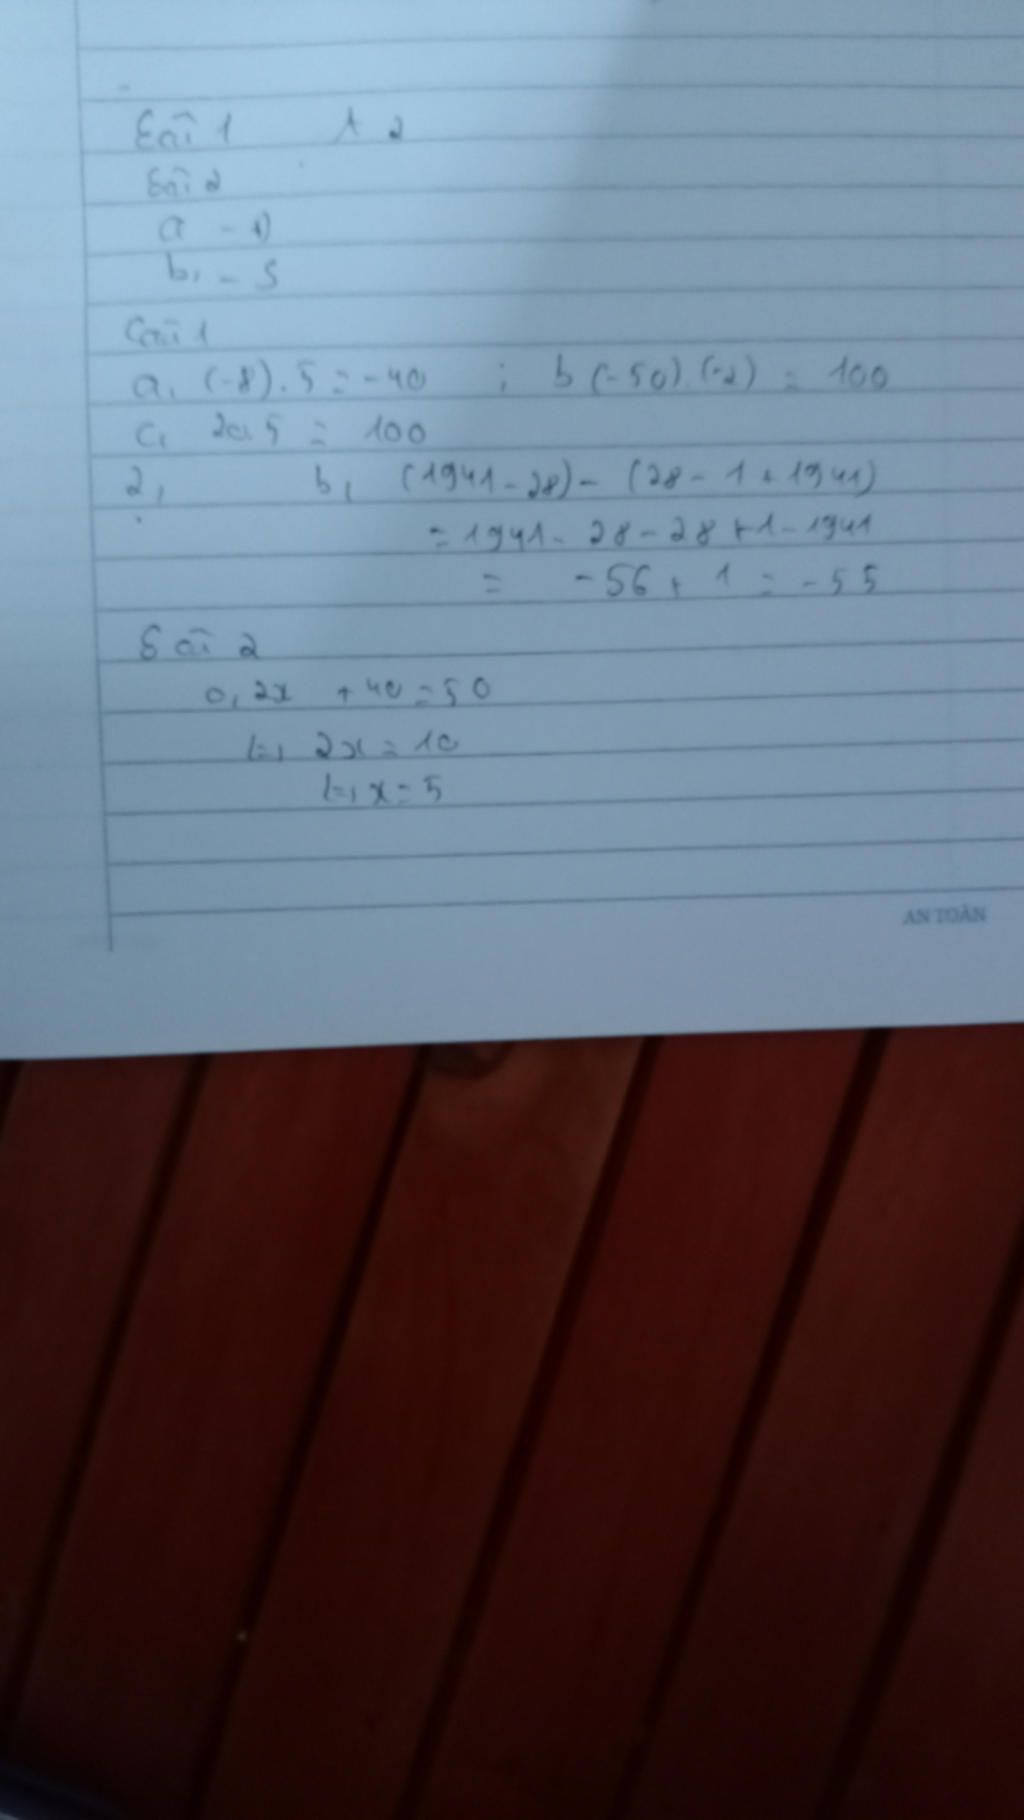 Bài 1 A 2
Bài 2
a -1)
b, - 5
Câu 1
a, (-8).5 = -40 ; b (-50).(-2) = 100
c, 20.5 = 100
2, b, (1941-28)- (28-1+1941)
= 1941- 28-28+1-1941
= -56+1 = -55
Bài 2
a, 2x +40=50
(=) 2x=10
(=) x=5
AN TOÀN